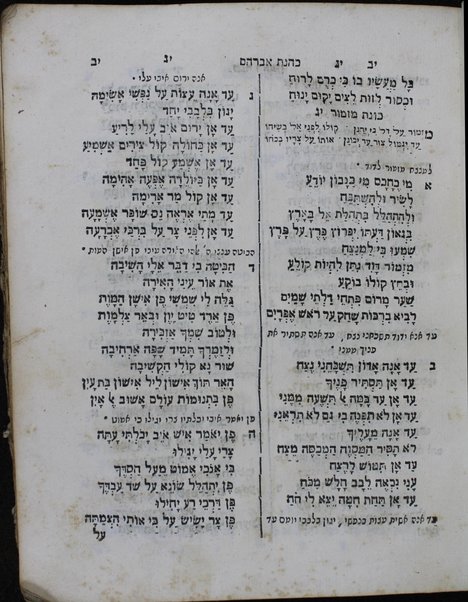 יב יג כהנת אברהם יג יב
כל מעשיו בו כי ברם לרוח
וכסור לזות לצים יקום ינוח
כונת מזמור יג
מזמור על דל בי יחנן קולו לפני אל בשיחו
עד ותמול צור עד יכונן אותו על צריו בכחו
למנצח מזמור לדוד
א מי כחכם מי כנבון יודע
לשיר ולהשתבח
ולהתהלל בתהלת אל בארץ
בגאון דעתו יפרוץ פרץ על פרץ
שמעו כי למנצח
מזמור דוד נתן להיות קולע
ובחץ קולו בוקע
שער מרום פתחי דלתי שמים
רביא ברכות שחק על ראש אפרים
עד אנה ידוד תשכחני נצח עד אנה תסתיר את
פניך ממני
ב עד אנה אדון תשכחני נצח
עד אן תסתיר פניך
עד אן עד במה תשעה ממני
עד אן לא תפנה בי גם לא תראני
עד אנה מעריך
לא תסיר המסוה המכסה מצח
עד אן תטוש לרצח
עני נכאה לבב החל מכח
עד אן תחת חטה יצא לי חח
עד אנה אשית עצות בנפשי יגון בלבבי יומם עד
אנה ירום איבי עלי
ג עד אנה עצות על נפשי אשימה
יגון בלבבי יחד
עד אן ירום איב עלי לריע
עד אן כחולה קול צירים אשמיע
עד אן אשמע קול פחד
עד אן כיולדה אפעה אהימה
עד אן קול מר ארימה
עד מתי אראה נס שופר אשמעה
עד אן לפני צר על ברכי אכרעה
הביטה ענני ה׳ אלהי האירה עיני פן אישן המות
ד הביטה כי דבר אלי השיבה
את אור עיני האירה
גלה לי שמשי פן אישן המות
פן ארד טיט יון ובאר צלמות
ולטוב שמך אזכירה
ולזמרך תמיד שפה ארחיבה
שור נא קולי הקשיבה
האר תוך אישון ליל אישון בת עין
פן בתנומות עולם אשוב אין
פן יאמר איבי יכלתיו צרי יגילו כי אמוט
ה פן יאמר איש איב יכלתי עתה
צרי עלי יגילו
כי אנכי אמוט מעל חסדך
פן יתהלל שונא על שד עבדך
פן דרכי רע יחילו
פן צר ישיש על כי אותי הצמתה
על